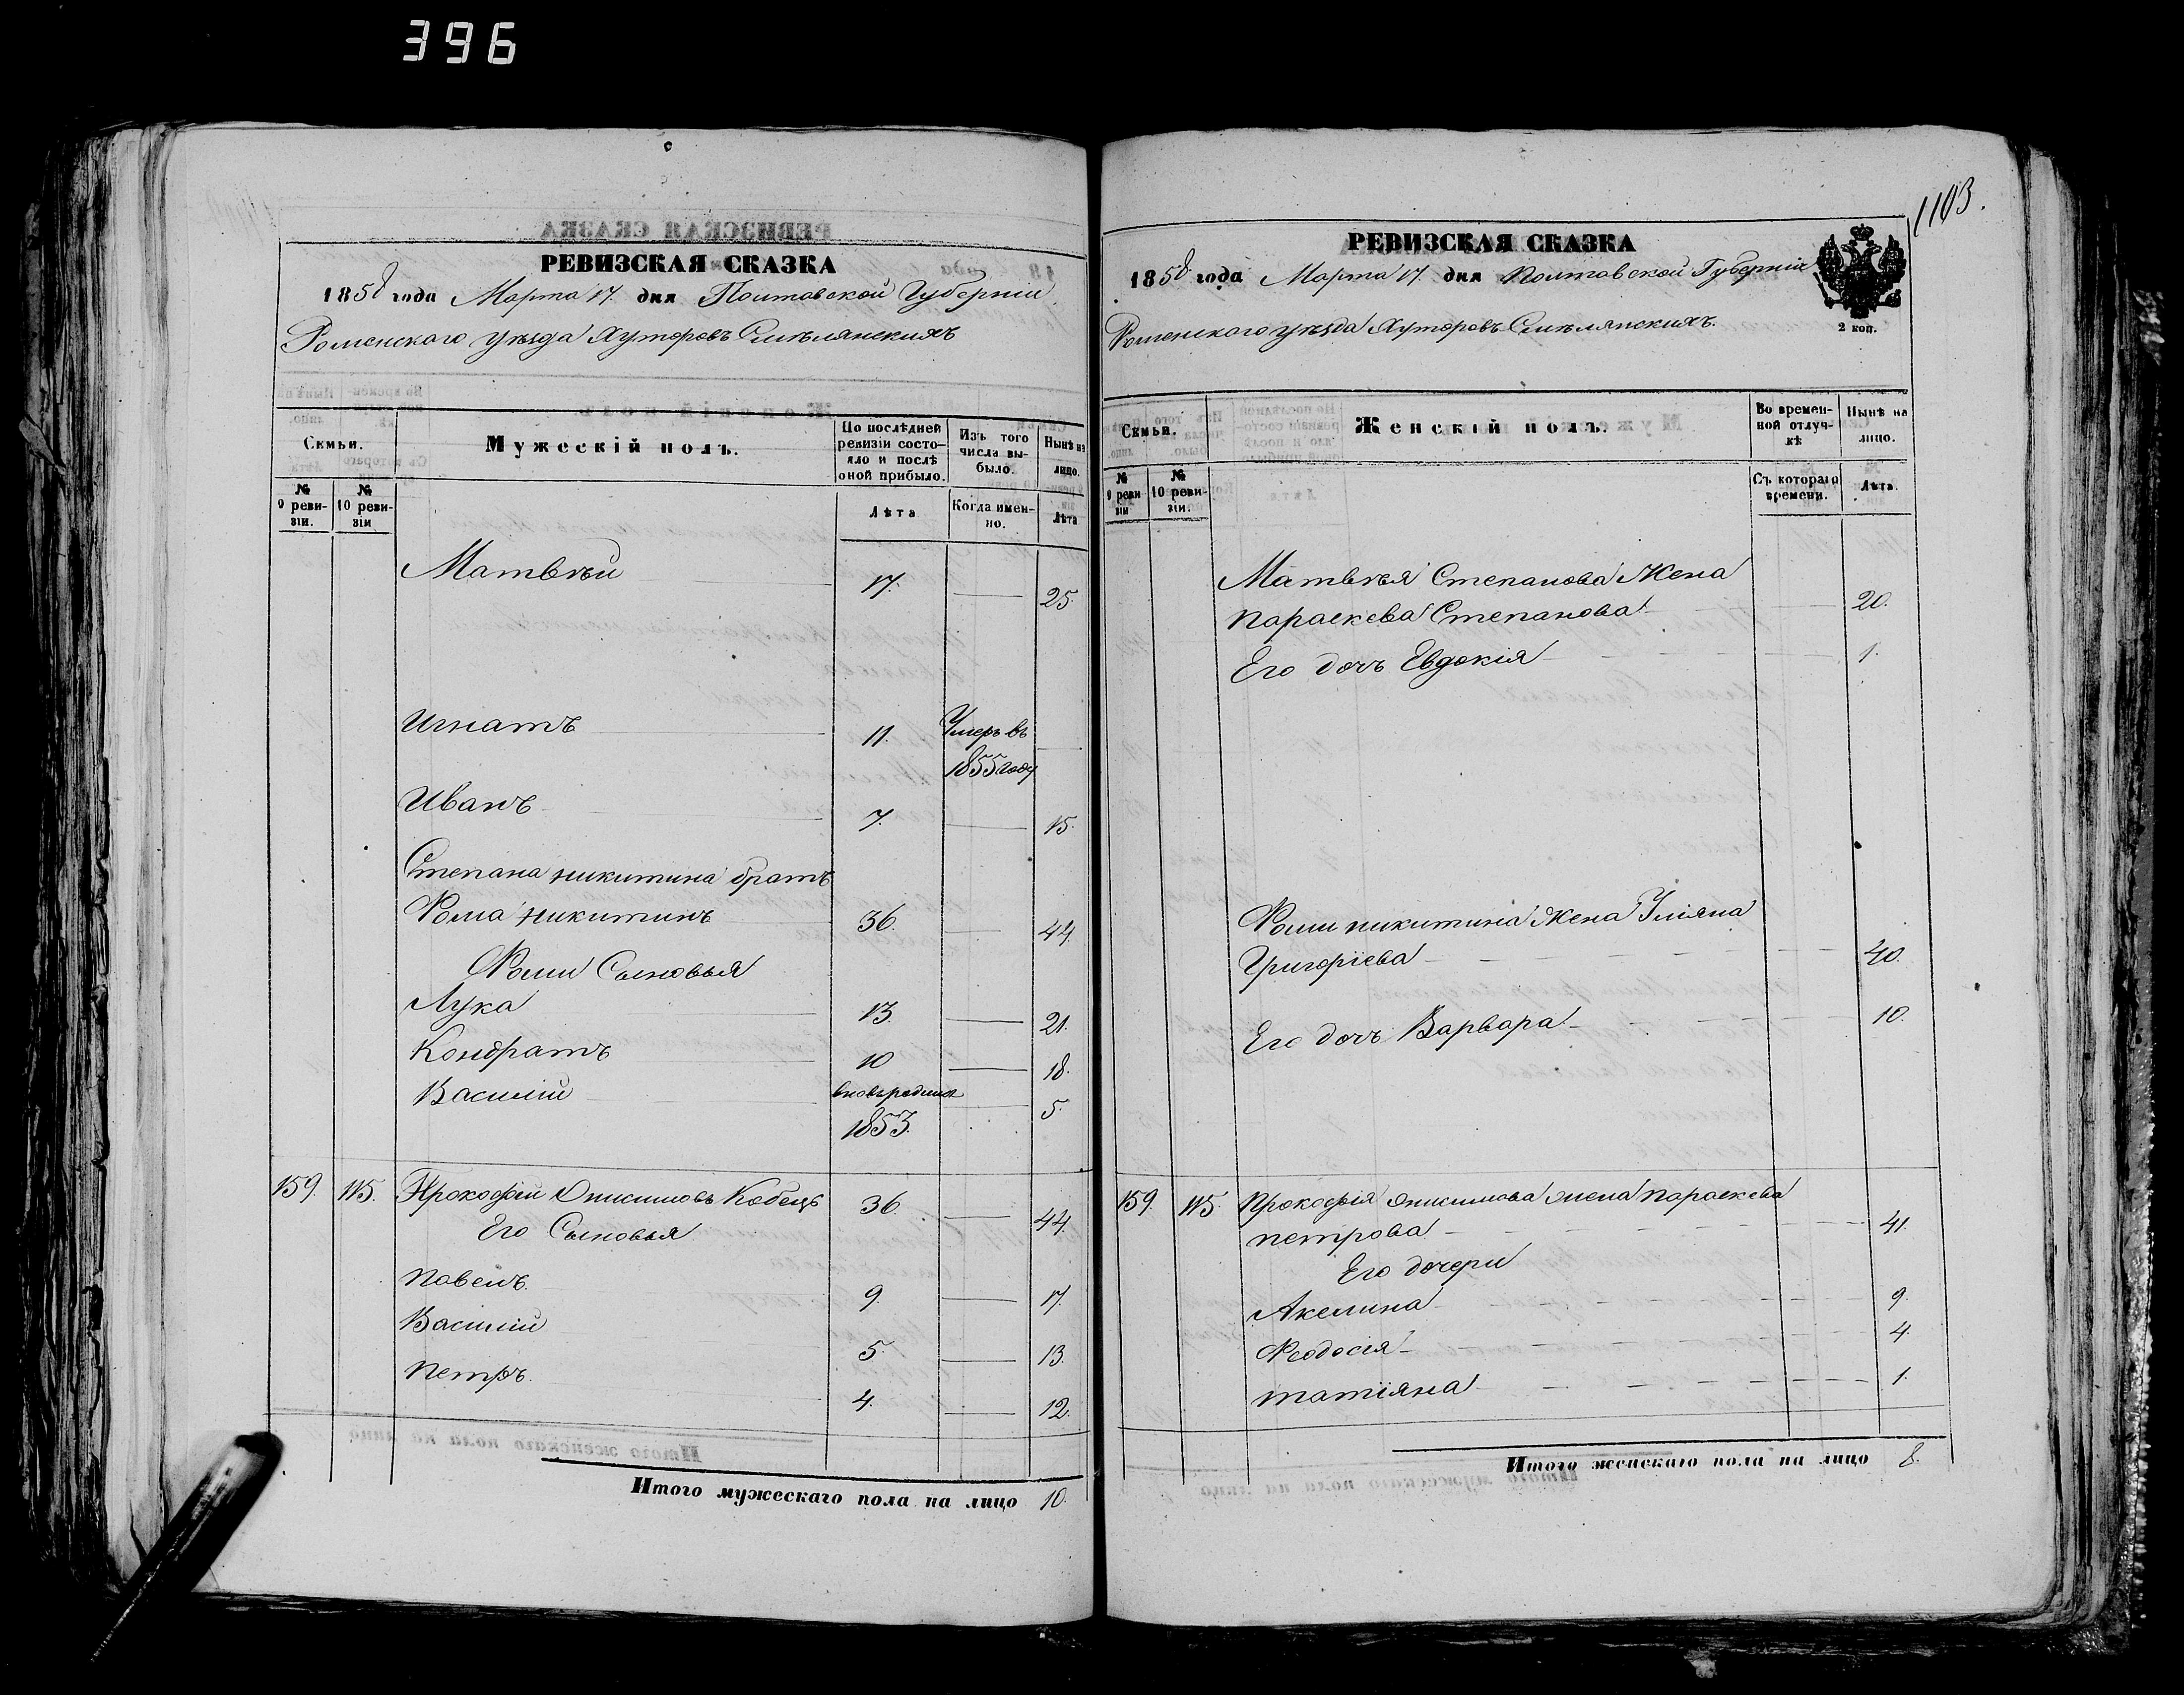 396
РЕВИЗСКАЯ СКАЗКА
1858 года Марта 17. дня Полтавской Губерніи
Роменскаго уѣзда Хуторовъ Смѣлянскихъ
Семьи.
Мужескій полъ.
По послѣдней ревизіи состояло и послѣ оной прибыло.
Изъ того числа выбыло.
Нынѣ на лицо.
№ 9 ревизіи.
№ 10 ревизіи
Лѣта
Когда именно.
Лѣта
Матвѣй 17. 25.
Игнатъ 11. Умеръ въ
1855 году
Иванъ 7. 15.
Степана Никитина братъ
Фома Никитинъ 36. 44.
Фомы Сыновья
Лука 13. 21.
Кондратъ 10 18.
Василій 5.
1853.
159. 115. Прокофій Онисимовъ Кобецъ 36. 44.
Его Сыновья
Павелъ. 9. 17.
Василій 5. 13.
Петръ. 4. 12.
Итого мужескаго пола на лицо 10.
1103.
РЕВИЗСКАЯ СКАЗКА
1858 года Марта 17. дня Полтавской Губерніи
2 коп.
Роменскаго уѣзда Хуторовъ Смѣлянскихъ.
Семьи.
Женскій полъ.
Во временной отлучкѣ
Нынѣ на лицо.
№ 9 ревизіи
№ 10 ревизіи.
Съ котораго времени.
Лѣта.
Матвѣя Степанова Жена
Параскева Степанова 20.
Его дочь Евдокія 1.
Фомы Никитина Жена Уліяна
Григоріева 40.
Его дочь Варвара 10.
159. 115. Прокофія Онисимова жена Параскева
Петрова 41.
Его дочери
Акелина 9.
Феодосія 4.
Татіяна 1.
Итого женскаго пола на лицо 8.